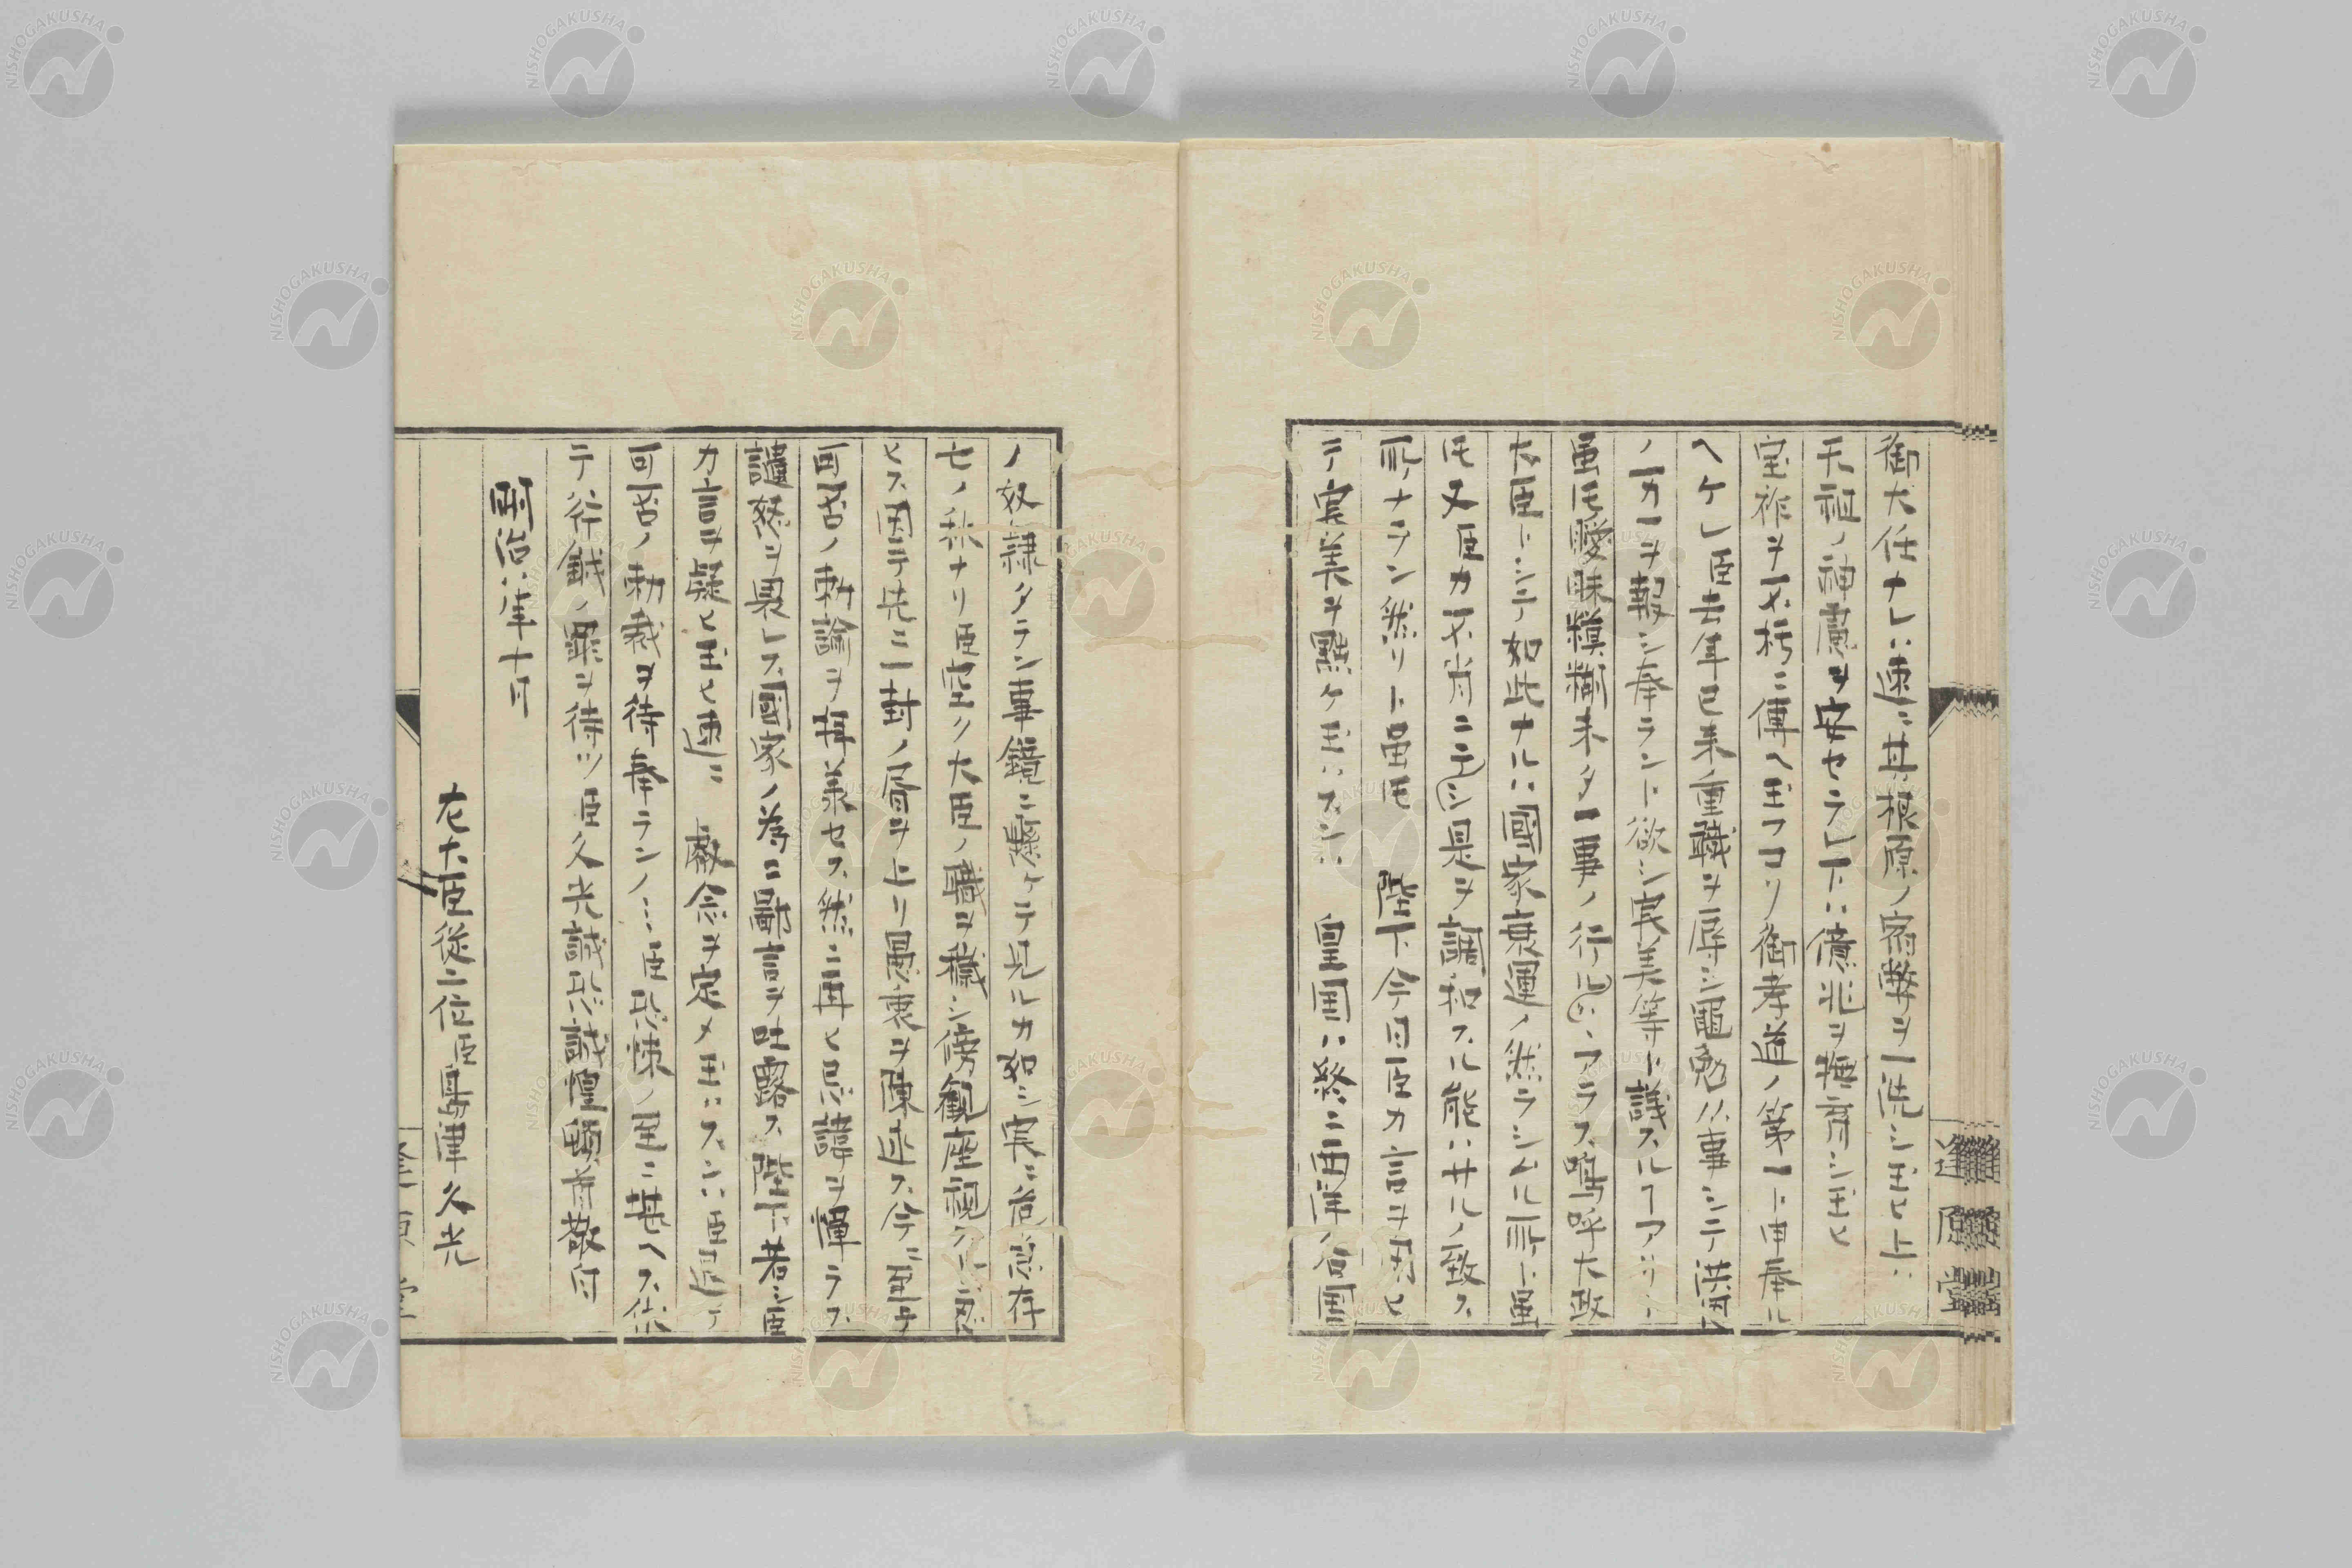 御大任ナレハ速ニ其根原ノ宿弊ヲ一洗シ玉ヒ上ハ
天祖ノ神慮ヲ安セラレ下ハ億兆ヲ撫育シ玉ヒ
宝祚ヲ不朽ニ傳ヘ玉フコソ御孝道ノ第一ト申奉ル
ヘケレ臣去年已来重職ヲ辱シ黽勉従事シテ洪恩
ノ万一ヲ報シ奉ラント欲シ実美等ト議スルヿアリト
虽氏曖昧糢糊未タ一事ノ行ルヽハアラス嗚呼大政
大臣トシテ如此ナルハ國家衰運ノ然ラシムル所ト虽
氏又臣カ不肖ニテシ是ヲ調和スル能ハサルノ致ス
所ナラン然リト虽氏 陛下今日臣カ言ヲ用ヒ
テ実美ヲ黜ケ玉ハスンハ 皇国ハ終ニ西洋各国
ノ奴隷タラン事鏡ニ懸ケテ見ルカ如シ実ニ危急存
亡ノ秋ナリ臣空ク大臣ノ職ヲ穢シ傍観座視クルニ忍
ヒス因テ先ニ一封ノ書ヲ上リ愚衷ヲ陳述ス今ニ至テ
可否ノ勅諭ヲ拝義セス然ニ再ヒ忌諱ヲ憚ラス
譴怒ヲ畏レス國家ノ為ニ鄙言ヲ吐露ス陛下若シ臣
カ言ヲ疑ヒ玉ヒ速ニ 叡念ヲ定メ玉ハスンハ臣退テ
可否ノ勅裁ヲ待奉ランノミ臣恐悚ノ至ニ堪ヘス伏
テ斧鉞ノ罪ヲ待ツ臣久光誠恐誠惶頓首敬白
明治八年十月
左大臣従二位臣島津久光
逢原堂